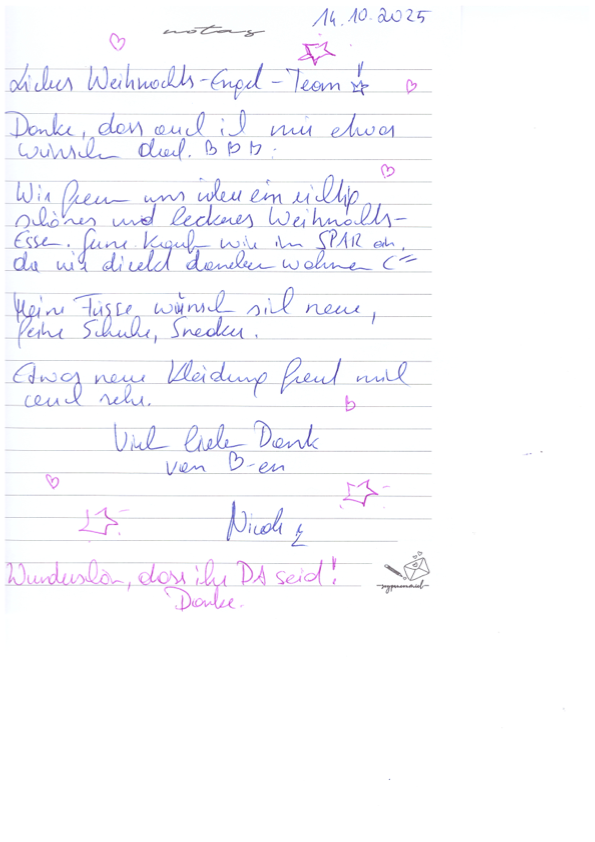 14.10.2025
notas
Liebes Weihnachts-Engel-Team!
Danke, dass auch ich mir etwas
wünschen darf.
Wir freuen uns über ein richtig
schönes und leckeres Weihnachts-
Essen. Gerne kaufen wir im SPAR ein,
da wir direkt daneben wohnen
Meine Füsse wünschen sich neue,
feine Schuhe, Sneaker.
Etwas neue Kleidung freut mich
auch sehr.
Viel liebe Dank
von -en
Nicole
Wunderschön, dass ihr DA seid!
Danke.